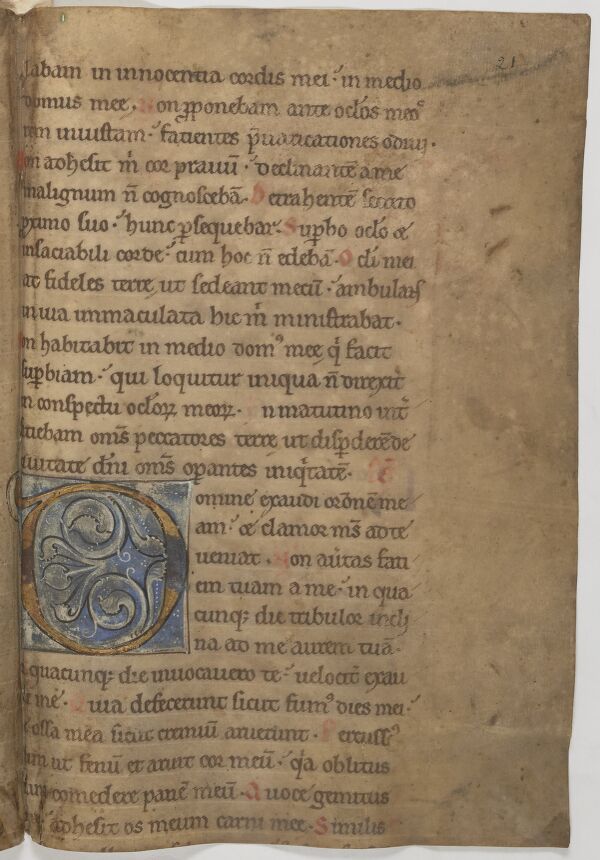 21
labam in innocentia cordis mei · in medio
domus mee. Non pponebam ante oclos meos
rem iniustam · facientes pvaricationes odivi ·
Non adhesit m cor pravū · declinantē a me
malignum n̄ cognoscebā. Detrahentē secreto
pximo suo · hunc psequebar. Supbo oclo &
insaciabili corde · cum hoc n̄ edebā. Oculi mei
ad fideles terre, ut sedeant mecū · ambulans
in via immaculata hic m ministrabat.
Non habitabit in medio domꝰ mee, q facit
supbiam · qui loquitur iniqua n̄ direxit
in conspectu oclorꝝ meorꝝ. In matutino int
ficiebam om̄s peccatores terre ut disperderē de
civitate dn̄i om̄s opantes iniqtatē.
Domine exaudi orōnē me
am · & clamor m̄s ad te
veniat. Non avtas faci
em tuam a me · in qua
cunqꝫ die tribulor incli
na ad me aurem tuā.
quacunqꝫ die invocavero te · velocit exau
di me. Quia defecerunt sicut fumꝰ dies mei ·
& ossa mea sicut cremiū aruerunt. Percussꝰ
sum ut fenū et aruit cor meū · qa oblitus
sum comedere panē meū. A voce gemitus
adhesit os meum carni mee. Similis